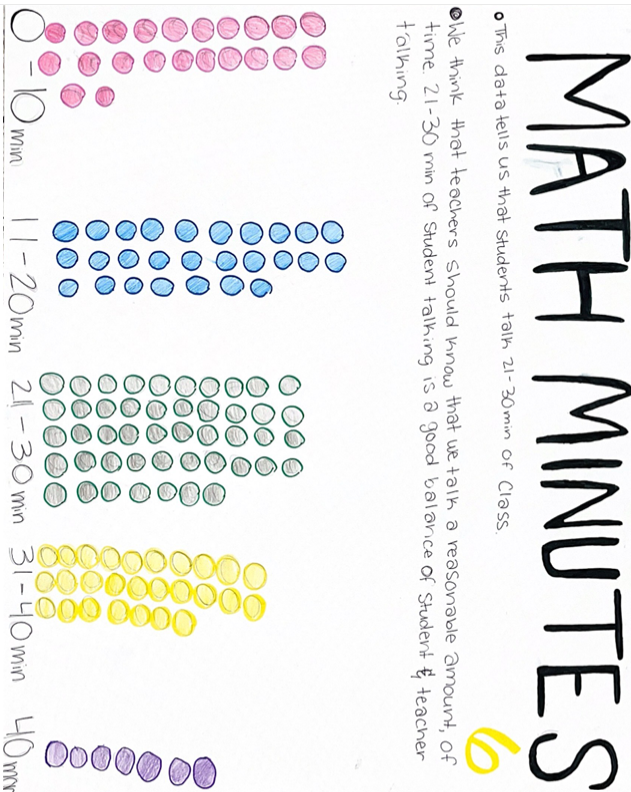 MATH MINUTES
6
This data tells us that students talk 21-30min of Class.
We think that teachers should know that we talk a reasonable amount, of
time. 21-30 min of student talking is a good balance of student & teacher
talking.
0-10 min
11-20min
21-30 min
31-40min